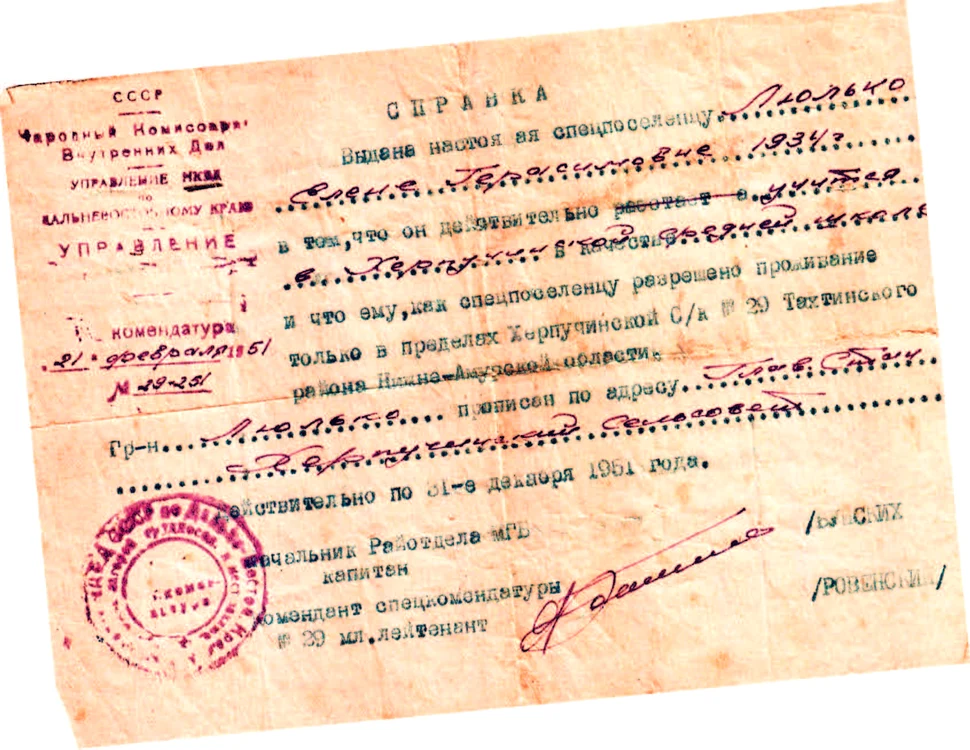 СССР
Народный Комиссариат
Внутренних Дел
УПРАВЛЕНИЕ НКВД
по
ДАЛЬНЕВОСТОЧНОМУ КРАЮ
УПРАВЛЕНИЕ
комендатура
21 февраля 1951
№ 29-251
СПРАВКА
Выдана настоя ая спецпоселенцу Люлько
Елене Герасимовне 1934 г
в том, что он действительно работает в учится
в Херпучинской в качестве средней школе
и что ему, как спецпоселенцу разрешено проживание
только в пределах Херпучинской С/к № 29 Тахтинского
района Нижне-Амурской области.
Гр-н Люлько прописан по адресу Глав Стан
Херпучинский сельсовет
действительно по 31-е декабря 1951 года.
Начальник Райотдела МГБ
капитан
Комендант спецкомендатуры
№ 29 мл.лейтенант
/РОВЕНСКИЙ/